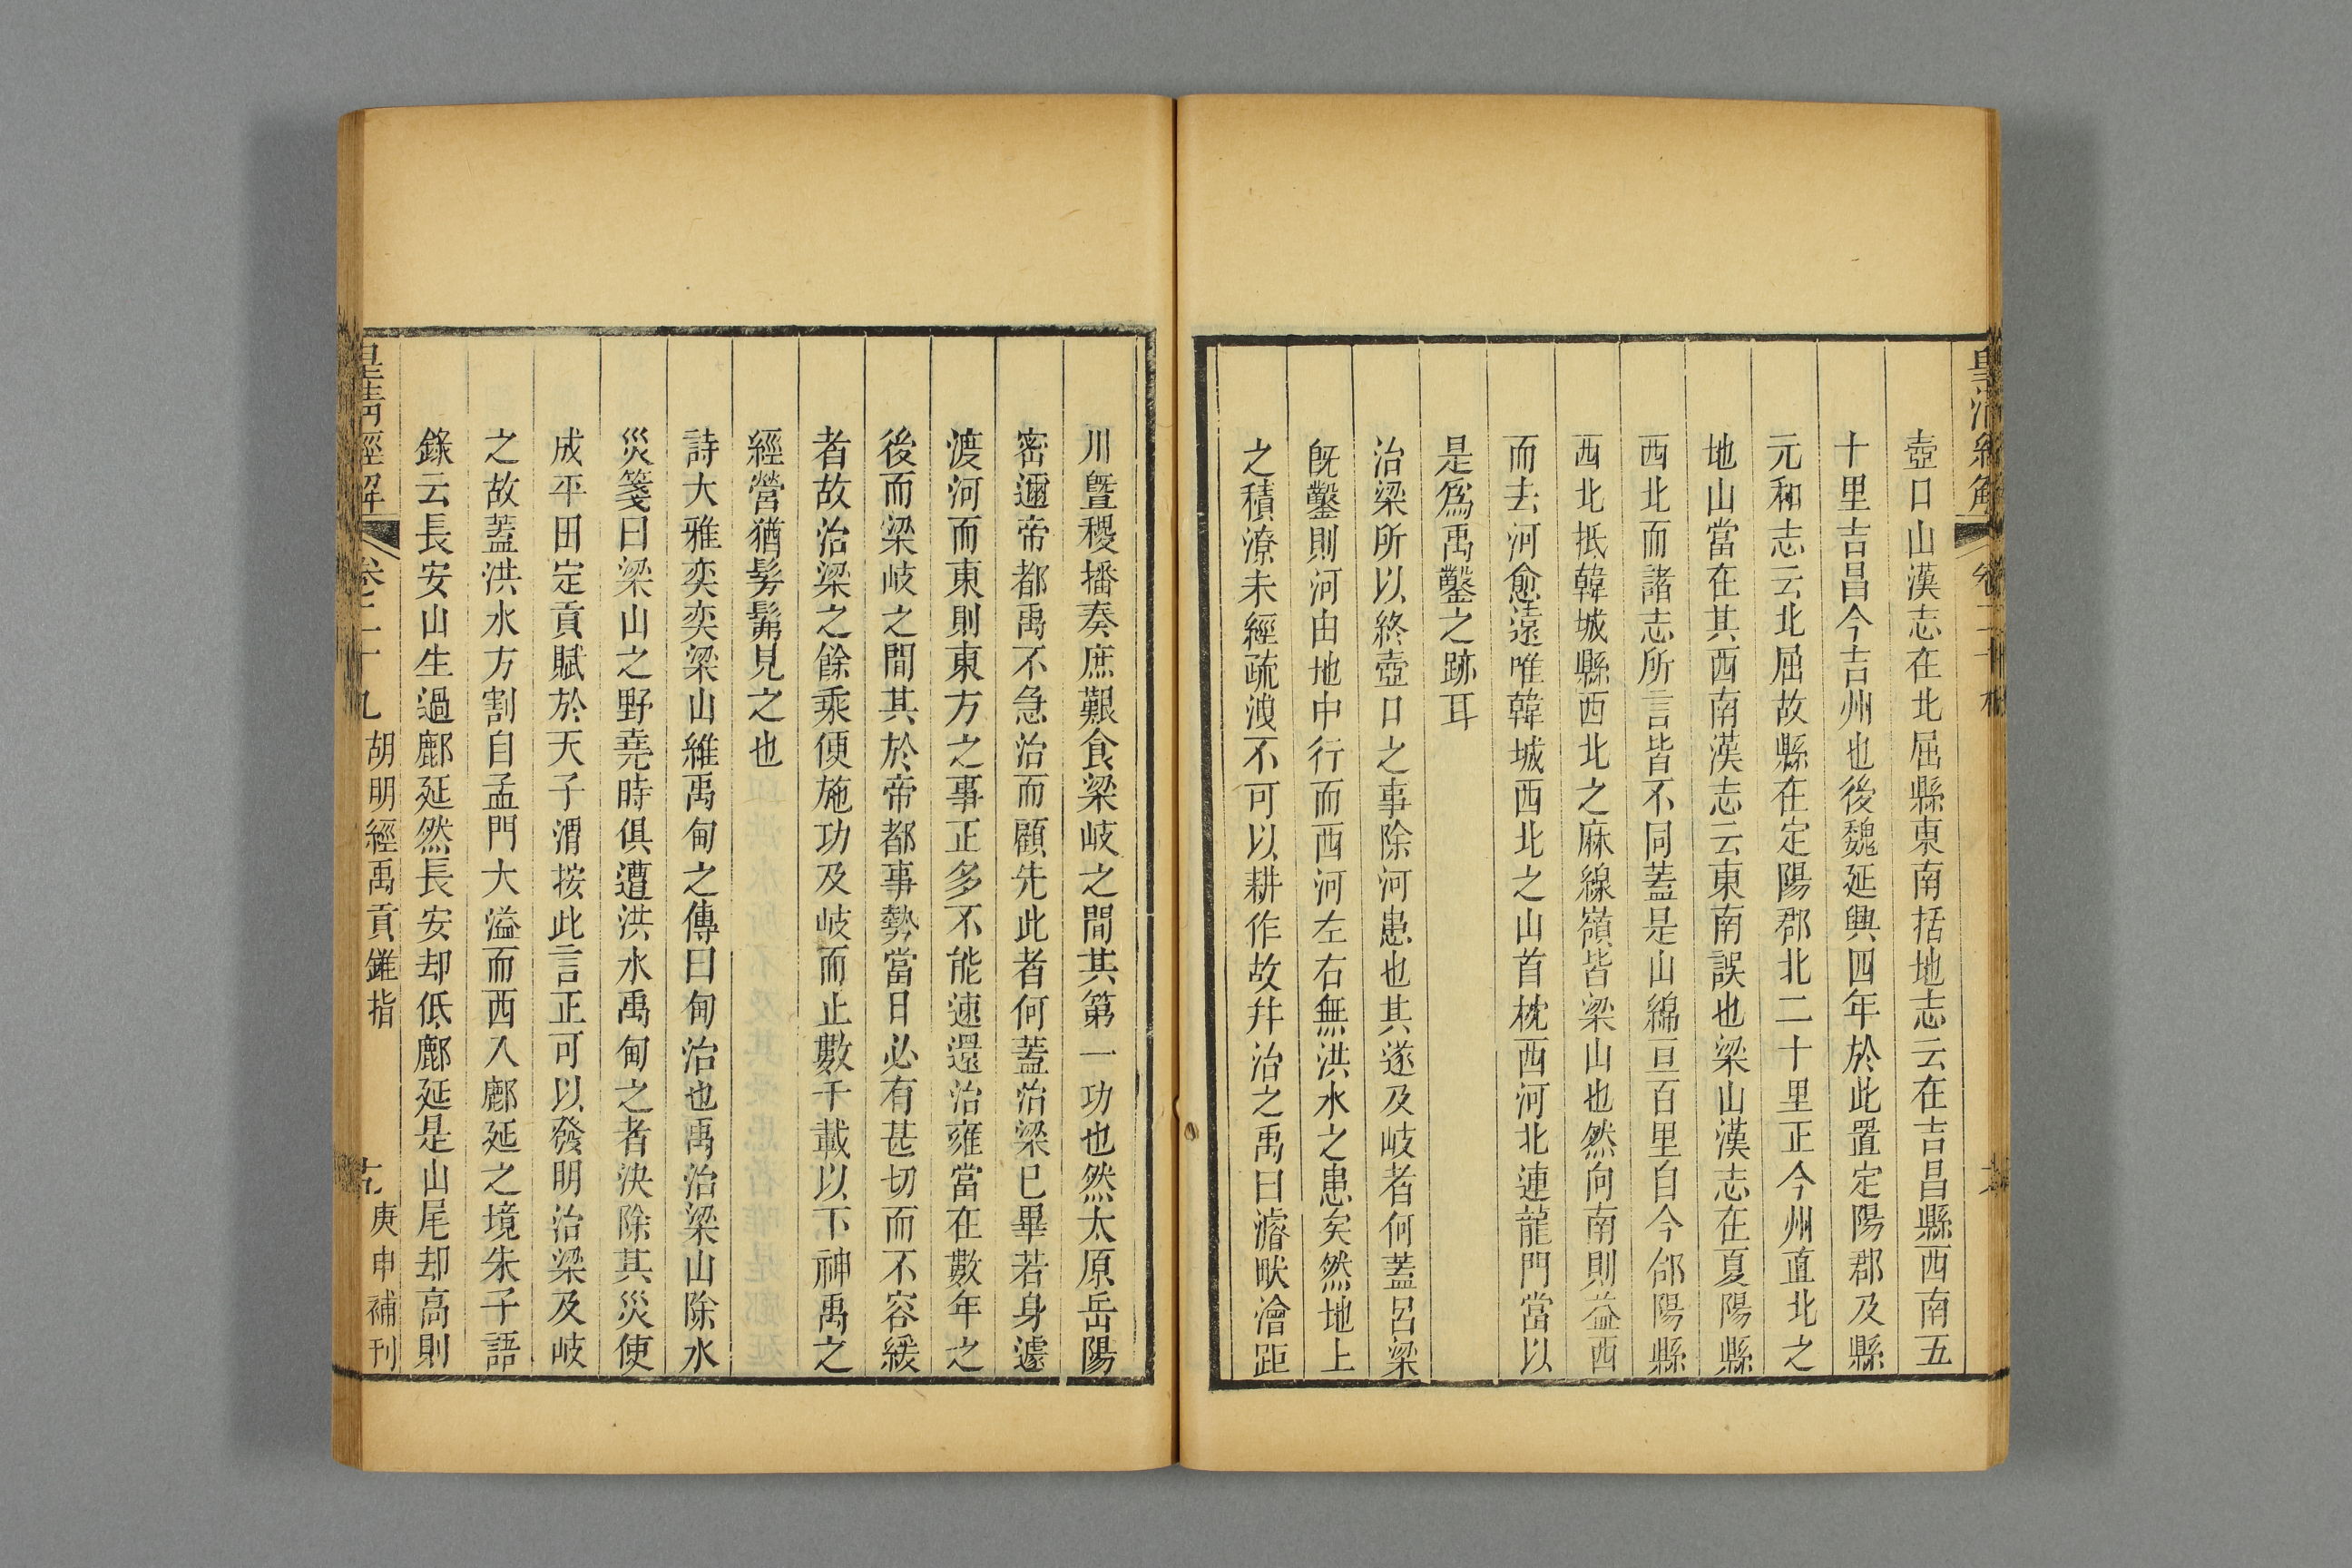 皇清經解
卷二十
壺口山漢志在北屈縣東南括地志云在吉昌縣西南五
十里吉昌今吉州也後魏延興四年於此置定陽郡及縣
元和志云北屈故縣在定陽郡北二十里正今州直北之
地山當在其西南漢志云東南誤也梁山漢志在夏陽縣
西北而諸志所言皆不同蓋是山綿亘百里自今郃陽縣
西北抵韓城縣西北之麻線嶺皆梁山也然向南則益西
而去河愈遠唯韓城西北之山首枕西河北連龍門當以
是爲禹鑿之跡耳
治梁所以終壺口之事除河患也其遂及岐者何蓋呂梁
旣鑿則河由地中行而西河左右無洪水之患矣然地上
之積潦未經疏洩不可以耕作故幷治之禹曰濬畎澮距
川曁稷播奏庶艱食梁岐之間其第一功也然太原岳陽
密邇帝都禹不急治而顧先此者何蓋治梁已畢若身遽
渡河而東則東方之事正多不能速還治雍當在數年之
後而梁岐之間其於帝都事勢當日必有甚切而不容緩
者故治梁之餘乘便施功及岐而止數千載以下神禹之
經營猶髣髴見之也
詩大雅奕奕梁山維禹甸之傳曰甸治也禹治梁山除水
災箋曰梁山之野堯時俱遭洪水禹甸之者決除其災使
成平田定貢賦於天子渭按此言正可以發明治梁及岐
之故蓋洪水方割自孟門大溢而西入鄜延之境朱子語
錄云長安山生過鄜延然長安却低鄜延是山尾却高則
皇淸經解
卷二十九
胡明經禹貢錐指
庚申補刊